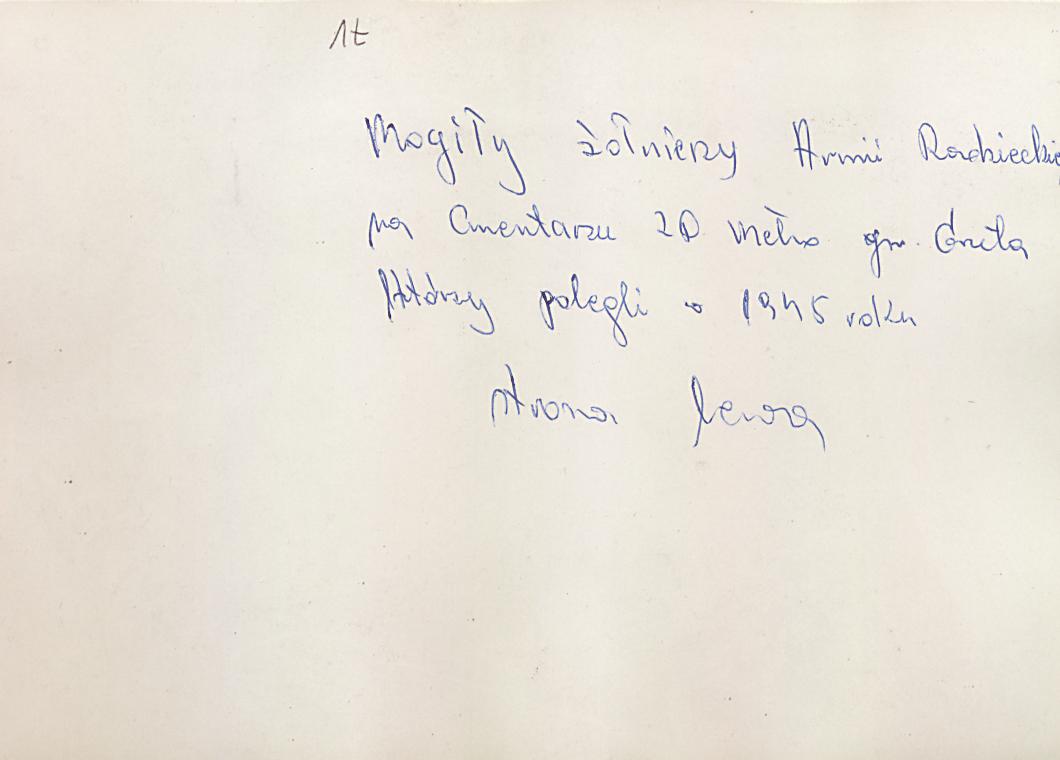 1t
Mogiły żołnierzy Armii Radzieckie
na Cmentarzu gm.
którzy polegli w 1945 roku
strona lewa